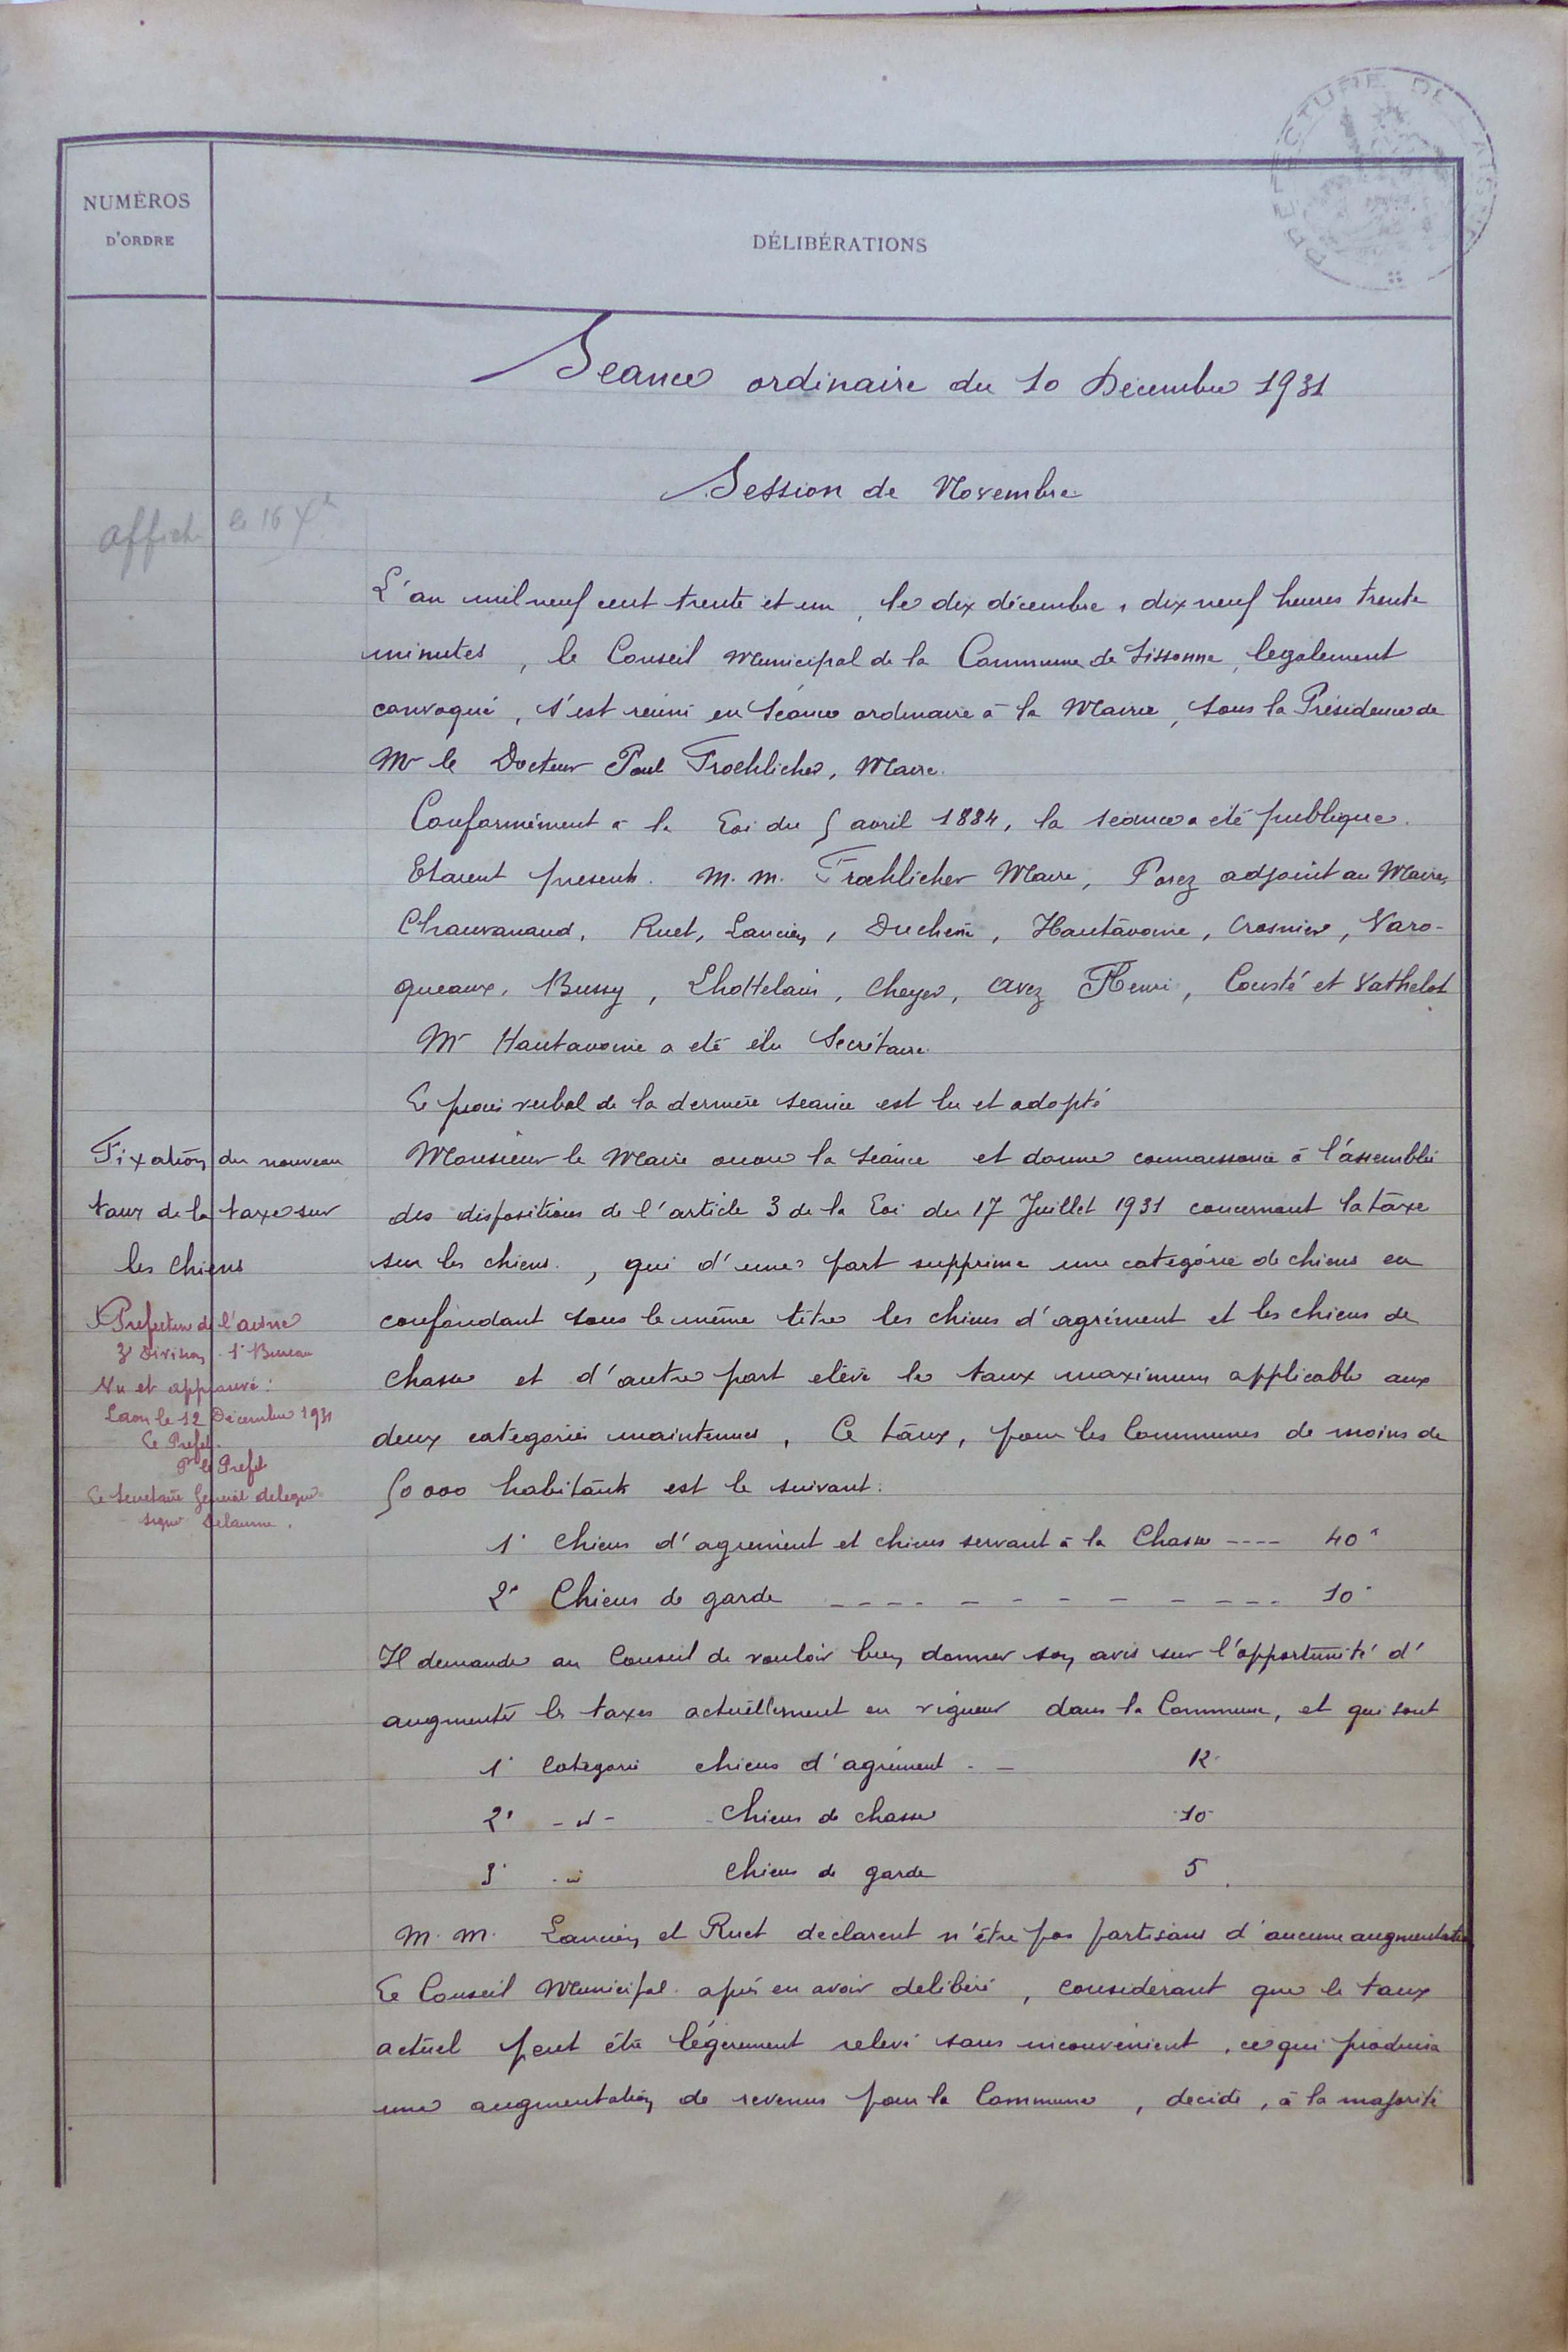 PREFECTURE DE L'AISNE
NUMÉROS
D'ORDRE
DÉLIBÉRATIONS
Séance ordinaire du 10 Décembre 1931
Session de Novembre
affiché le 16 Xbre
L'an mil neuf cent trente et un, le dix décembre, dix neuf heures trente
minutes, le Conseil Municipal de la Commune de Sissonne, légalement
convoqué, s'est réuni en séance ordinaire à la Mairie, sous la Présidence de
Mr le Docteur Paul Froehlicher, Maire.
Conformément à la Loi du 5 avril 1884, la séance a été publique.
Etaient présents. M.M. Froehlicher Maire, Porez adjoint au Maire,
Chauvanaud, Ruet, Lancien, Duchene, Hautavoine, Crosnier, Varo-
queaux, Bussy, Lhottelain, Cheyer, Avez Henri, Cousté et Vathelot
Mr Hautavoine a été élu Secrétaire.
Le procès verbal de la dernière séance est lu et adopté
Fixation du nouveau
taux de la taxe sur
les chiens
Préfecture de l'Aisne
3e Division 1er Bureau
Vu et approuvé :
Laon le 12 Décembre 1931
Le Préfet.
Pr le Préfet
Le Secrétaire Général délégué
signé Delaume.
Monsieur le Maire ouvre la séance et donne connaissance à l'assemblée
des dispositions de l'article 3 de la Loi du 17 Juillet 1931 concernant la taxe
sur les chiens, qui d'une part supprime une catégorie de chiens en
confondant sous le même titre les chiens d'agrément et les chiens de
chasse et d'autre part élève le taux maximum applicable aux
deux catégories maintenues. Ce taux, pour les Communes de moins de
50 000 habitants est le suivant :
1° Chiens d'agrément et chiens servant à la Chasse ---- 40 f
2° Chiens de garde ---- - - - - - --- 10
Il demande au Conseil de vouloir bien donner son avis sur l'opportunité d'
augmenter les taxes actuellement en vigueur dans la Commune, et qui sont
1° Catégorie chiens d'agrément - - 12
2° - d - Chiens de chasse 10
3° - d Chiens de garde 5
M.M. Lancien et Ruet déclarent n'être pas partisans d'aucune augmentation
Le Conseil Municipal après en avoir délibéré, considérant que le taux
actuel peut être légèrement relevé sans inconvénient, ce qui produira
une augmentation de revenus pour la Commune, décide, à la majorité